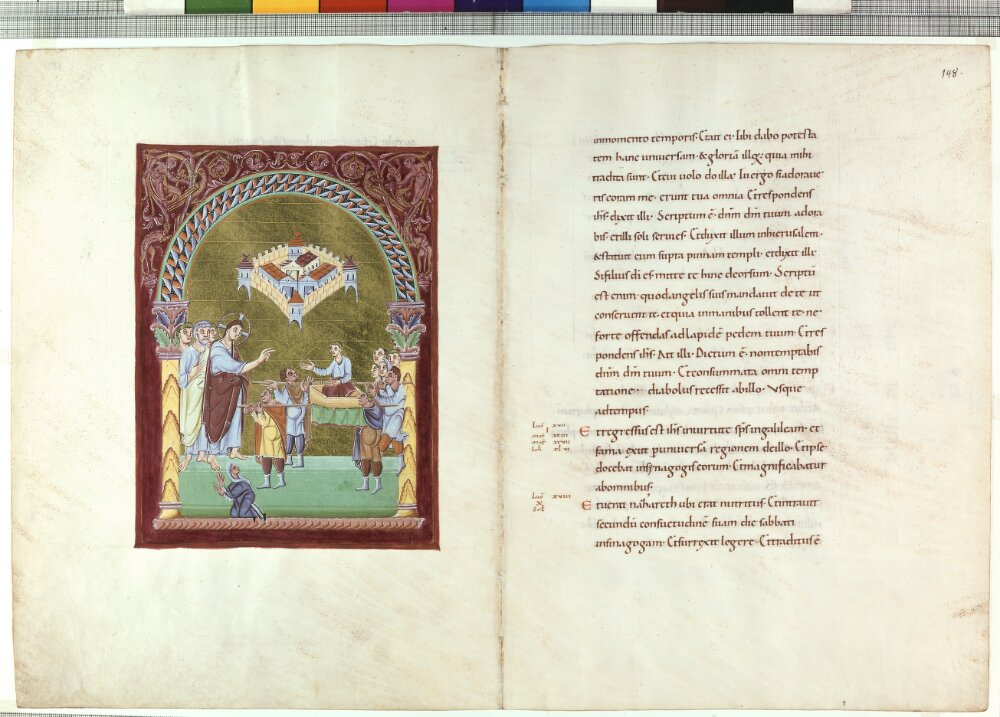 148.
inmomento temporis· Et ait ei· Tibi dabo potesta
tem hanc universam· & gloriā illoꝝ· quia mihi
tradita sunt· Et cui volo do illa· Tu ergo si adorave
ris coram me· erunt tua omnia· Et respondens
ihs dixit illi· Scriptum ē· dnm dm tuum adora
bis· et illi soli servies· Et duxit illum in hierusalem·
& statuit eum supra pinnam templi· et dixit illi·
Si filius di es· mitte te hinc deorsum· Scriptū
est enim· quod angelis suis mandavit de te ut
conservent te· et quia in manibus tollent te· ne
forte offendas ad lapidē pedem tuum· Et res
pondens ihs· Ait illi· Dictum ē· non temptabis
dnm dm tuum· Et consummata omni temp
tatione· diabolus recessit ab illo· Usque
ad tempus·
Et regressus est ihs in virtute sps in galileam· et
fama exiit p universā regionem de illo· Et ipse
docebat in synagogis eorum· Et magnificabatur
ab omnibus·
Et venit nazareth ubi erat nutritus· Et intravit
secundū consuetudinē suam die sabbati
in synagogam· Et surrexit legere· Et traditus ē